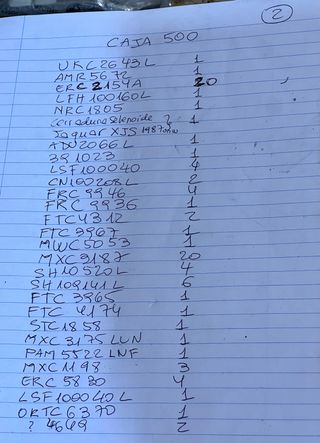 2
CAJA 500
UKC2643L 1
AMR5672 1
ERC2159A 20
LFH100160L 1
NRC1805 1
cerradura selenoide ? 1
Jaguar XJS 1987
ADU2066L 1
391023 1
LSF100040 4
CN100208L 2
FRC9946 4
FRC9936 1
FTC4312 2
FTC3967 1
MWC5053 1
MXC3187 20
SH10520L 4
SH109141L 6
FTC3965 1
FTC 4174 1
STC1858 1
MXC3175LUN 1
PAM5522LNF 1
MXC1198 3
ERC5830 4
LSF100040L 1
ORTC6370 1
? 4649 2